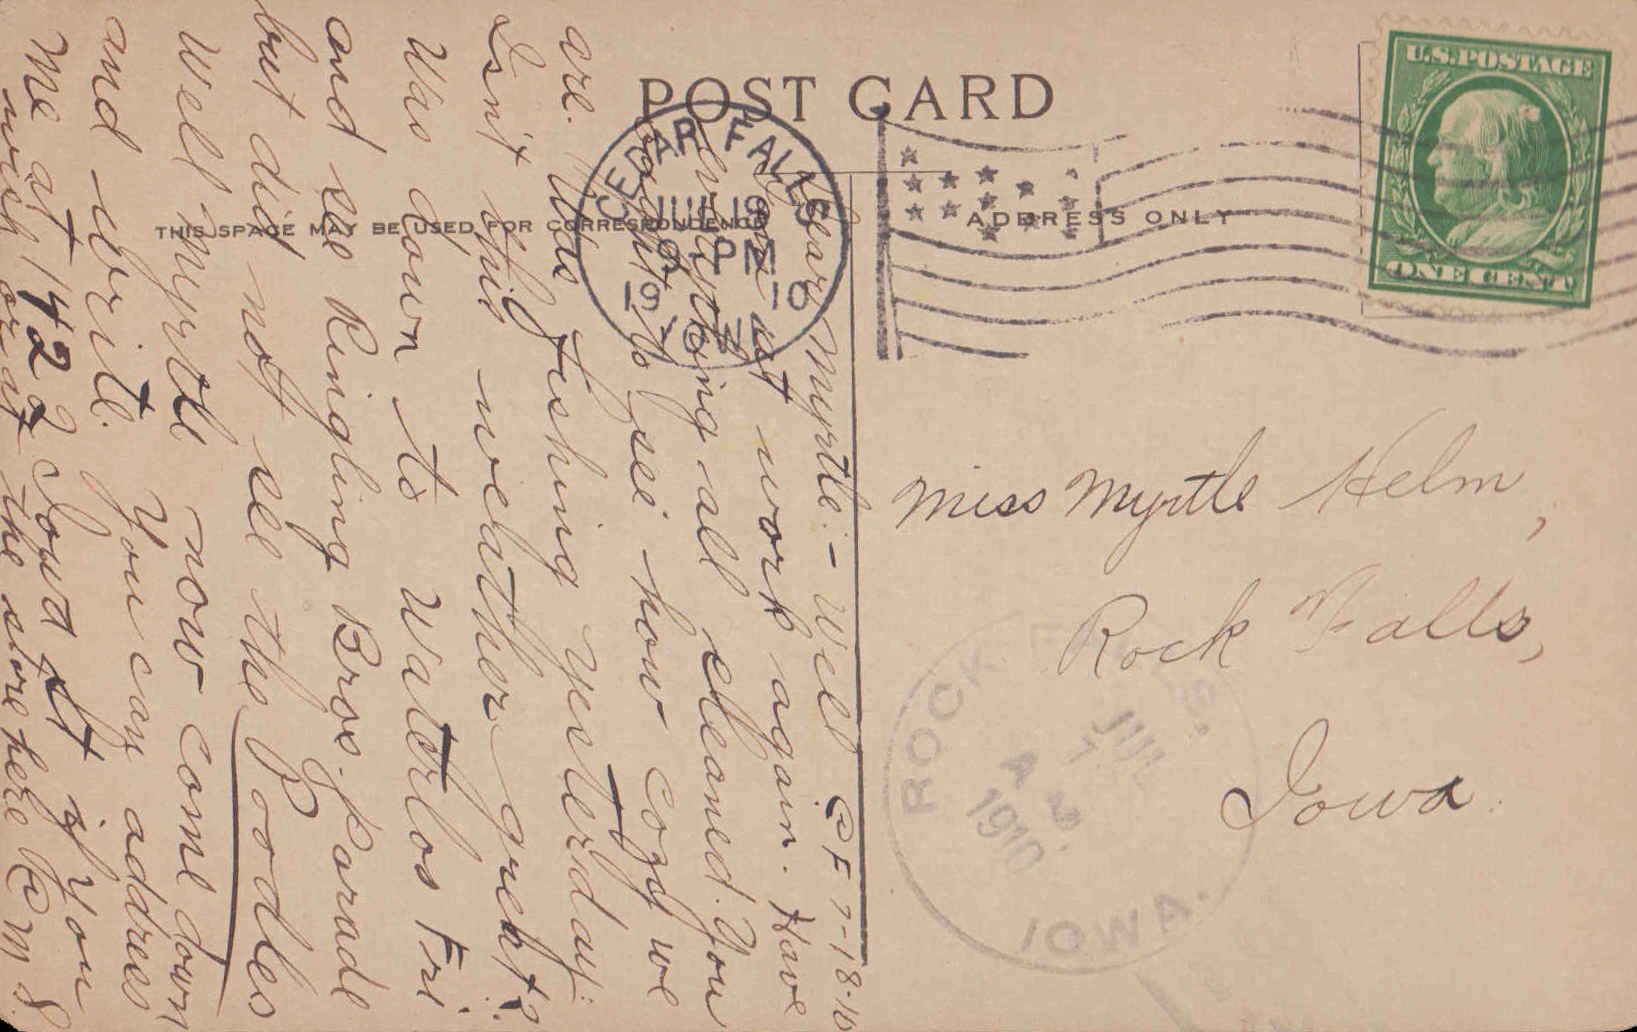 POST CARD
THIS SPACE MAY BE USED FOR CORRESPONDENCE
ADDRESS ONLY
U.S. POSTAGE
ONE CENT
CEDAR FALLS
JUL 19
9 PM
1910
IOWA
Miss Myrtle Helm,
Rock Falls,
Iowa.
ROCK FALLS.
JUL
A
1910
IOWA.
C F 7-18-10
Dear Myrtle:- Well
at work again. Have
everything all cleaned. You
ought to see how cozy we
are. Was fishing yesterday.
Isn't this weather great?
Was down to Waterloo Fri
and see Ringling Bros. Parade
but did not see the Poodles
Well Myrtle now come down
and write. You can address
me at 1422 if you
wish or at the store here C M S.